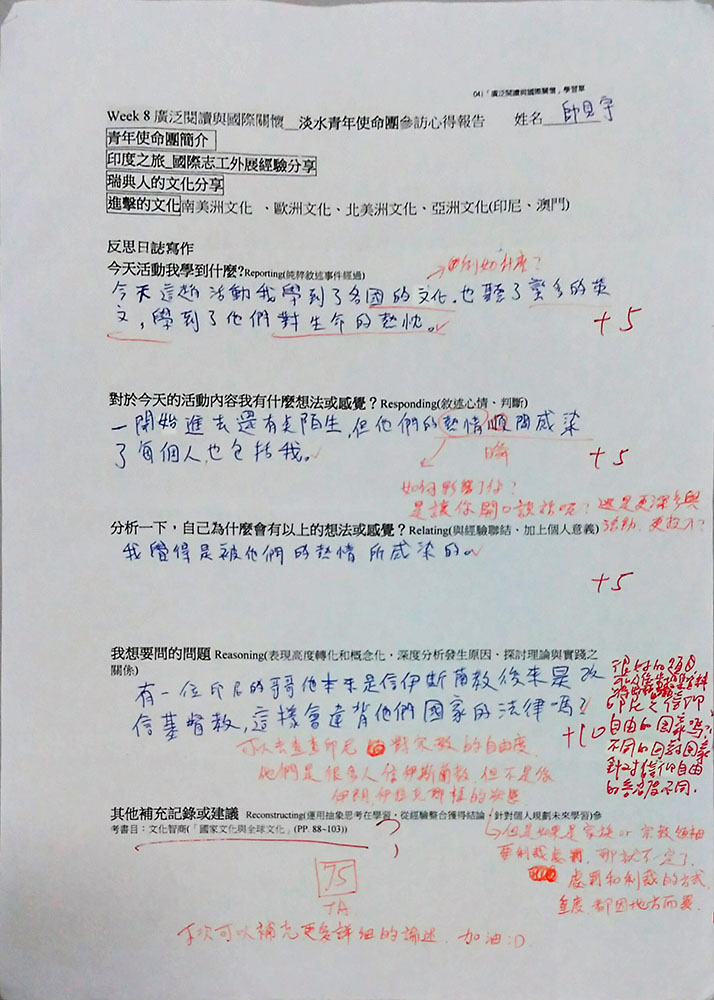 041「廣泛閱讀與國際關懷」學習單
Week 8 廣泛閱讀與國際關懷__淡水青年使命團參訪心得報告 姓名 帥貝宇
青年使命團簡介
印度之旅_國際志工外展經驗分享
瑞典人的文化分享
進擊的文化南美洲文化 、歐洲文化、北美洲文化、亞洲文化(印尼、澳門)
反思日誌寫作
今天活動我學到什麼?Reporting(純粹敘述事件經過)
例如什麼?
今天這趟活動我學到了各國的文化,也聽了蠻多的英
文,學到了他們對生命的熱忱。
+5
對於今天的活動內容我有什麼想法或感覺?Responding(敘述心情、判斷)
一開始進去還有點陌生,但他們的熱情順間感染
了每個人,也包括我。
瞬
+5
如何影響了你?
是讓你開口談話呢?還是更深參與
活動、更投入?
分析一下,自己為什麼會有以上的想法或感覺?Relating(與經驗聯結、加上個人意義)
我覺得是被他們的熱情所感染的。
+5
我想要問的問題 Reasoning(表現高度轉化和概念化,深度分析發生原因、探討理論與實踐之
關係)
有一位印尼的哥他本來是信伊斯蘭教後來是改
信基督教,這樣會違背他們國家的法律嗎?
+10
很好的題目
印尼是信仰
自由的國家嗎?
不同的國家
針對信仰自由
的容忍度不同.
可以去查查印尼對宗教的自由度.
他們是很多人信伊斯蘭教,但不是像
伊朗,伊拉克那樣的狀態
其他補充記錄或建議 Reconstructing(運用抽象思考在學習,從經驗整合獲得結論,針對個人規劃未來學習)參
考書目:文化智商(「國家文化與全球文化」(PP. 88~103))
?
但是如果是家族 or 宗教領袖
要制裁處罰,那就不一定了.
處罰和制裁的方式
重度,都因地方而異.
75
TA
下次可以補充更多詳細的論述. 加油:D.